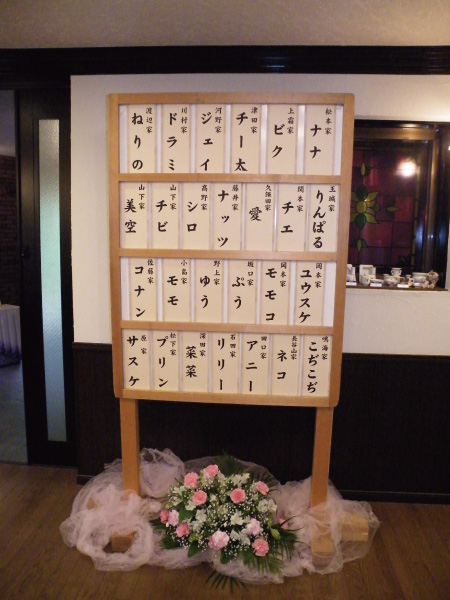 松本家 ナナ
上霜家 ビク
津田家 チー太
河野家 ジェイ
川村家 ドラミ
渡辺家 ねりの
玉城家 りんぱる
関本家 チエ
久保田家 愛
藤井家 ナッツ
高野家 シロ
山下家 チビ
山下家 美空
岡本家 ユウスケ
岡本家 モモコ
坂口家 ぷう
野上家 ゆう
小島家 モモ
佐藤家 コナン
鳴海家 こぢこぢ
長谷山家 ネコ
田口家 アニー
石田家 リリー
深田家 菜菜
松下家 プリン
原家 サスケ